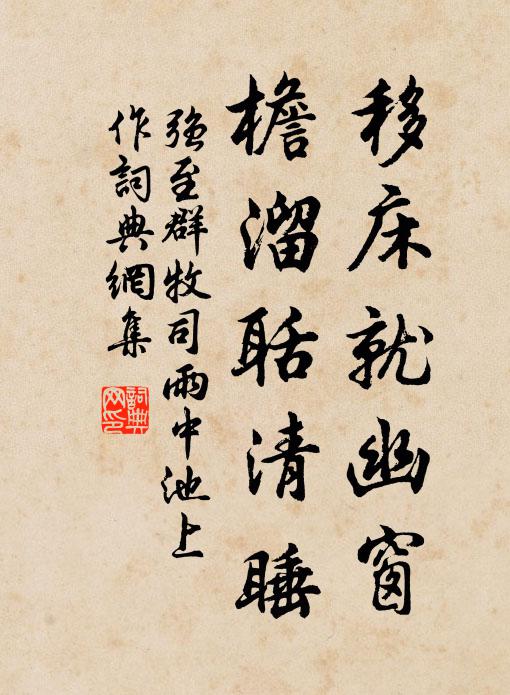 移床就幽窗
檐溜聒清睡
强至群牧司雨中池上
作詞典網集
詞典
网印